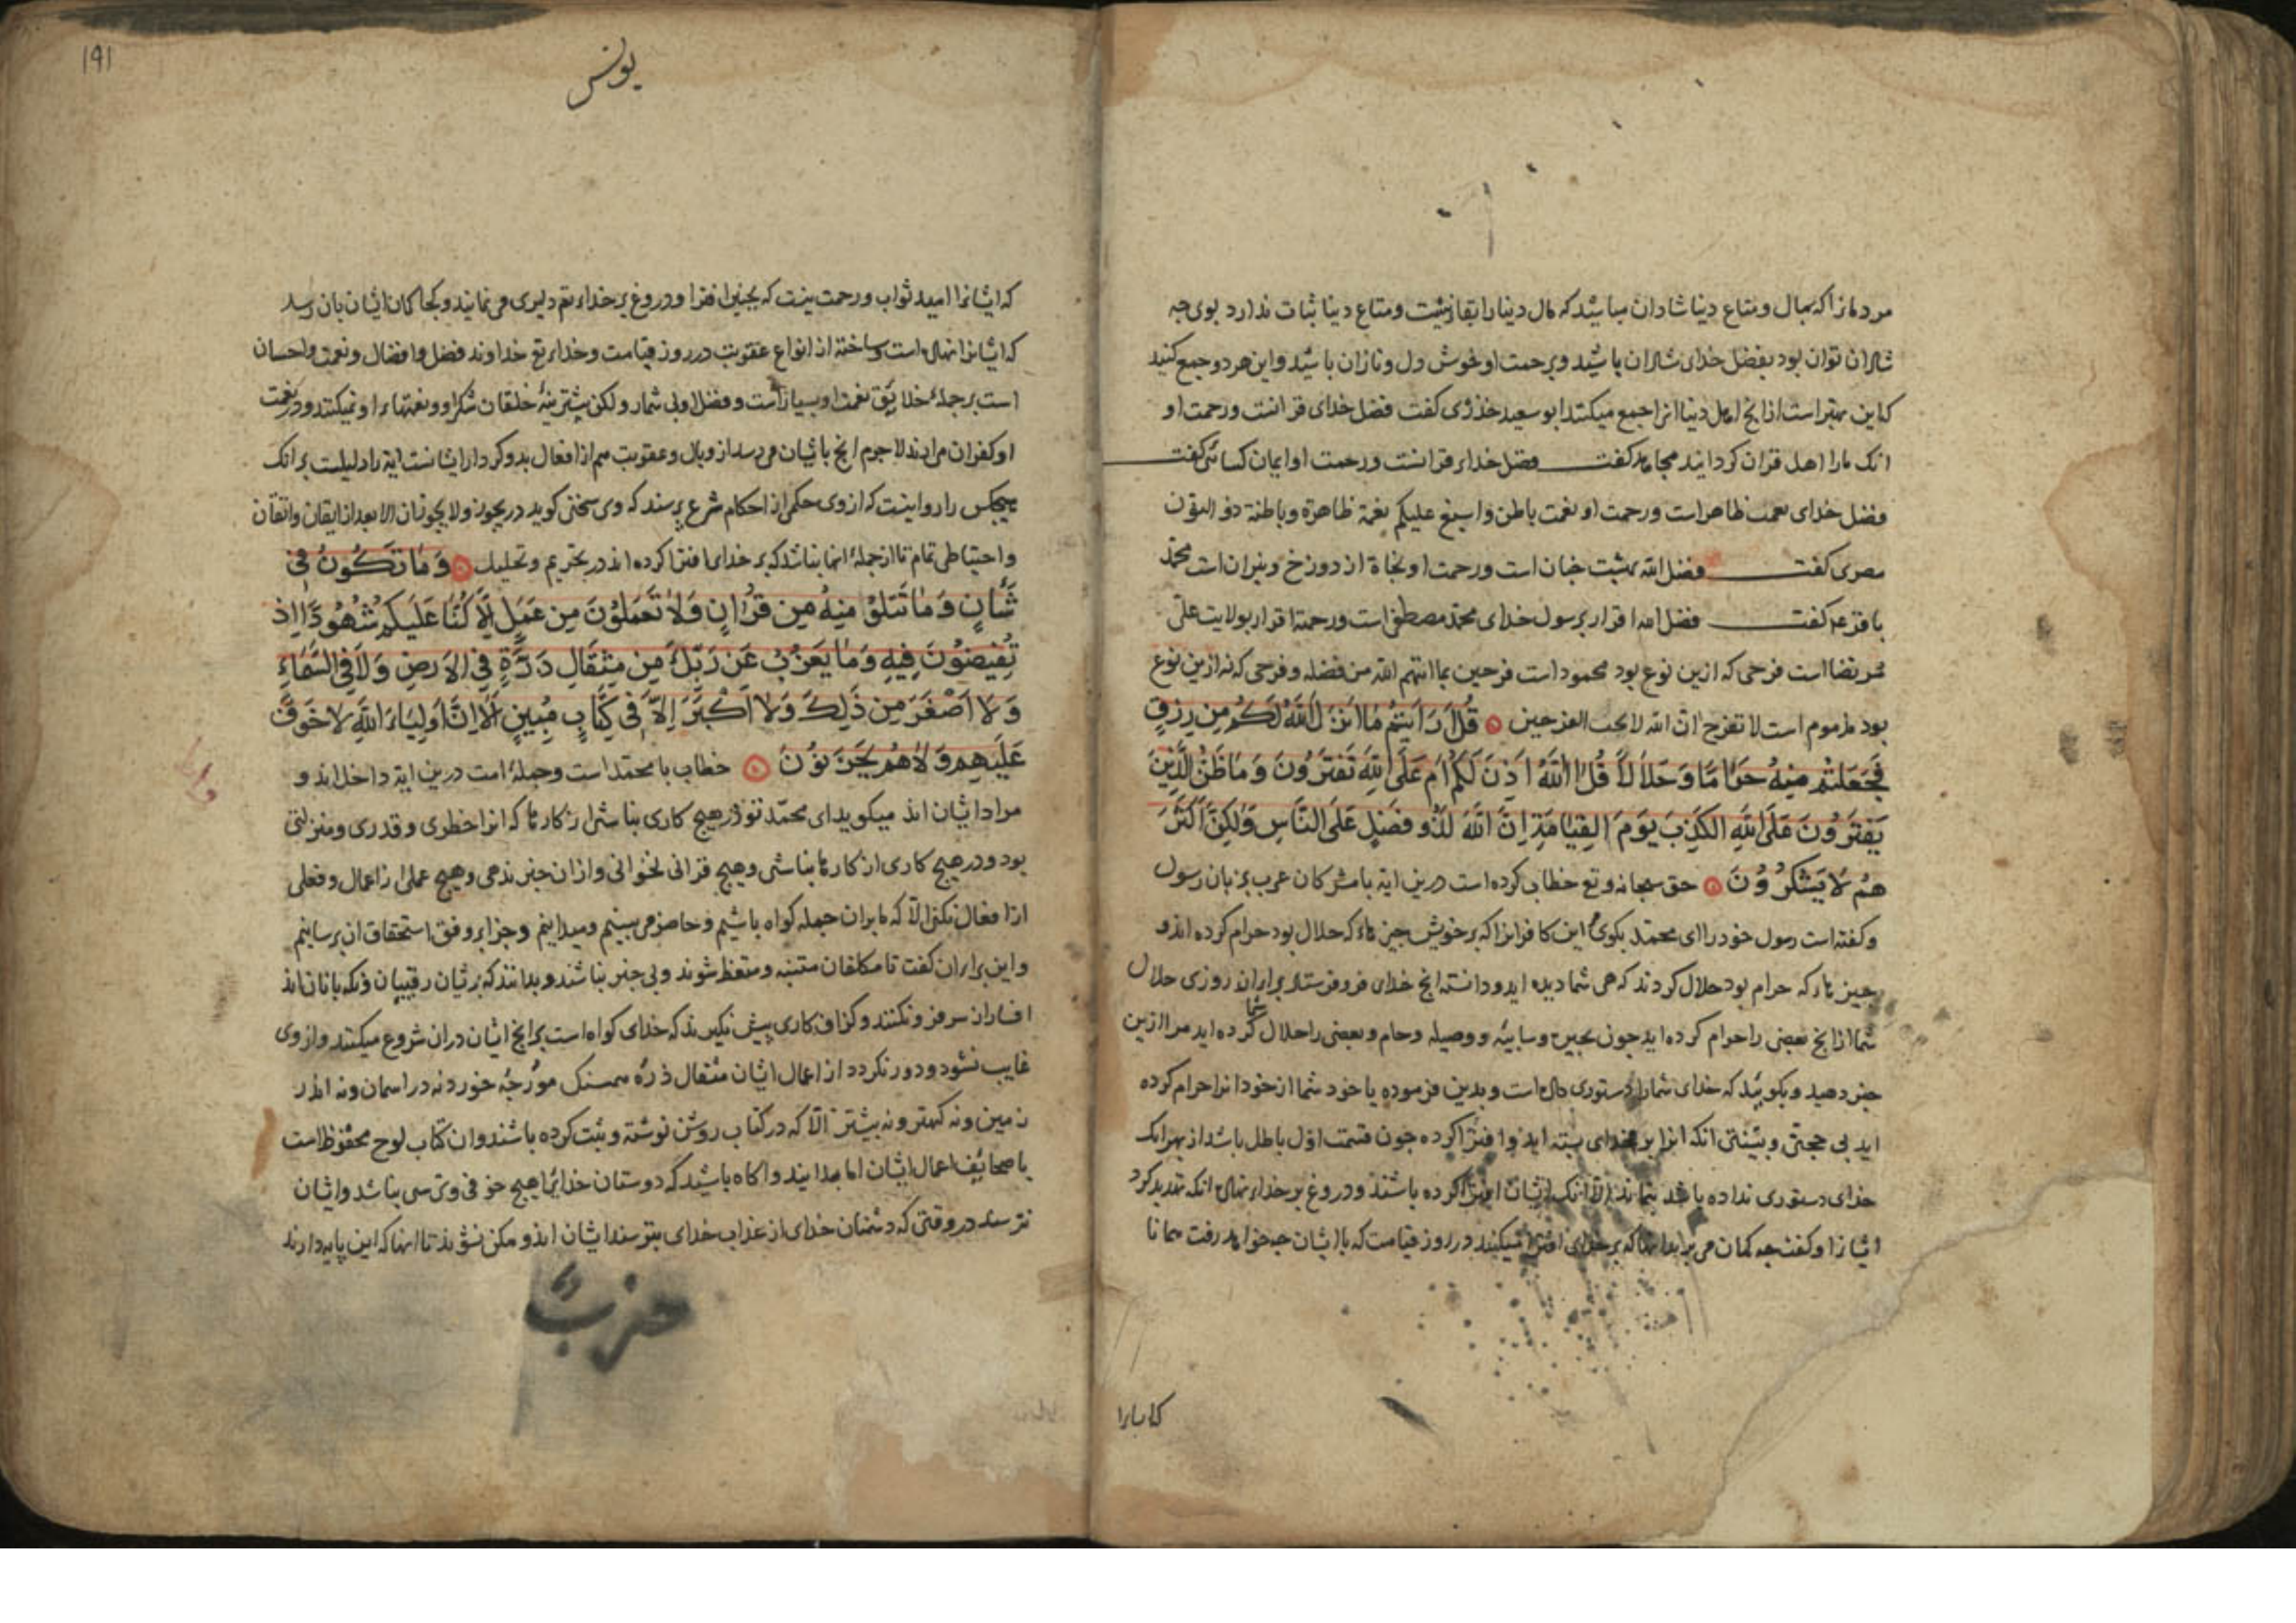 مردمانرا که بمال و متاع دینا شادان میباشید که مال دینا را بقا نیست و متاع دینا ثبات ندارد بوی چه
شادان توان بود بفضل خدای شادان باشید و برحمت او خوش دل و نازان باشید و این هر دو جمع کنید
که این بهتر است از انچ اهل دینا انرا جمع میکنند ابو سعید خذری کفت فضل خدای قرانست و رحمت او
انک ما را اهل قران کردانید مجاهد کفت فضل خدا قرانست و رحمت او ایمان کسائی کفت
فضل خدای نعمت ظاهر است و رحمت او نعمت باطن و اسبغ علیکم نعمة ظاهرة و باطنة ذو النون
مصری کفت فضل الله بهشت جنان است و رحمت او نجاة از دوزخ و نیران است محمد
باقر ع کفت فضل الله اقرار برسول خدای محمد مصطفی است و رحمة اقرار بولایت علی
مرتضا است فرحی که ازین نوع بود محمود است فرحین بما اتیهم الله من فضله و فرحی که نه ازین نوع
بود مذموم است لا تفرح ان الله لا یحب الفرحین قُلْ اَرَاَیْتُمْ مَا اَنْزَلَ اللهُ لَکُمْ مِنْ رِزْقٍ
فَجَعَلْتُمْ مِنْهُ حَرَامًا وَحَلَالًا قُلْ اللهُ اَذِنَ لَکُمْ اَمْ عَلَی اللهِ تَفْتَرُونَ وَمَا ظَنُّ الَّذِینَ
یَفْتَرُونَ عَلَی اللهِ الْکَذِبَ یَوْمَ الْقِیَامَةِ اِنَّ اللهَ لَذُو فَضْلٍ عَلَی النَّاسِ وَلٰکِنَّ اَکْثَرَ
هُمْ لَا یَشْکُرُونَ حق سبحانه و تع خطاب کرده است درین ایة با مشرکان عرب بر زبان رسول
و کفته است رسول خود را ای محمد بکوی این کافرانرا که بر خویش چیزهاء که حلال بود حرام کرده اند و
چیزهاء که حرام بود حلال کردند که هی شما دیده اید و دانسته انچ خدای فرو فرستاد برای ان روزی حلال
شما از انچ بعضی را حرام کرده اید چون بحیره و سایبه و وصیله و حام و بعضی را حلال کرده اید مرا ازین
شما
خبر دهید و بکویید که خدای شما را دستوری داده است و بدین فرموده یا خود شما از خود انرا حرام کرده
اید بی حجتی و بینتی انکه انرا بر خدای بسته اید و افترا کرده چون قسمت اول باطل باشد از بهر انک
خدای دستوری نداده باشد نماند الا انک ایشان افترا کرده باشند و دروغ بر خداء نهاده انکه تهدید کرد
ایشانرا و کفت چه کمان می برند انها که بر خدای افترا میکنند در روز قیامت که با ایشان چه خواهد رفت همانا
کایشانرا
۱۹۱
یونس
که ایشانرا امید ثواب و رحمت نیست که بچنین افترا و دروغ بر خداء تع دلیری می نمایند و کجا کمان ایشان بان رسد
که ایشانرا نهاده است و ساخته از انواع عقوبت در روز قیامت و خداء تع خداوند فضل و افضال و نعمت و احسان
است بر جملهء خلایق نعمت او بسیار است و فضل او بی شمار و لکن بیشترینهء خلقان شکر او و نعمتهاء او نمیکنند و در نعمت
او کفران می ارند لا جرم انچ بایشان می رسد از وبال و عقوبت هم از افعال بد و کردار ایشانست ایة را دلیلست بر انک
هیچکس را روا نیست که از وی حکمی از احکام شرع پرسند که وی سخنی کوید در یجوز و لا یجوز ان الا بعد از ایقان و اتقان
و احتیاطی تمام تا از جملهء انها نباشد که بر خدای افترا کرده اند در تحریم و تحلیل وَمَا تَکُونُ فِی
شَأْنٍ وَمَا تَتْلُوْ مِنْهُ مِنْ قُرْاٰنٍ وَلَا تَعْمَلُوْنَ مِنْ عَمَلٍ اِلَّا کُنَّا عَلَیْکُمْ شُهُوْدًا اِذْ
تُفِیضُوْنَ فِیْهِ وَمَا یَعْزُبُ عَنْ رَبِّکَ مِنْ مِثْقَالِ ذَرَّةٍ فِی الْاَرْضِ وَلَا فِی السَّمَاءِ
وَلَا اَصْغَرَ مِنْ ذٰلِکَ وَلَا اَکْبَرَ اِلَّا فِی کِتَابٍ مُبِینٍ اَلَا اِنَّ اَوْلِیَاءَ اللهِ لَا خَوْفٌ
عَلَیْهِمْ وَلَا هُمْ یَحْزَنُوْنَ خطاب با محمد است و جملهء امت درین ایة داخل اند و
مراد ایشان اند میکوید ای محمد تو در هیچ کاری نباشی از کارها که انرا خطری و قدری و منزلتی
بود و در هیچ کاری از کارها نباشی و هیچ قرانی نخوانی و از ان خبر ندهی و هیچ عملی از اعمال و فعلی
از افعال نکنی الا که ما بران جمله کواه باشیم و حاضر می بینیم و میدانیم و جزا بر وفق استحقاق ان برسانیم
و این برای ان کفت تا مکلفان متنبه و متعظ شوند و بی خبر نباشند و بدانند که بریشان رقیبان
افسار از سر فرو نکنند و کزاف کاری پیش نکیرند که خدای کواه است بر انچ ایشان دران شروع میکنند و از وی
غایب نشود و دور نکردد از اعمال ایشان مثقال ذره همسنک مورچهء خورد نه در اسمان و نه اندر
زمین و نه کهتر و نه بیشتر الا که در کتاب روشن نوشته و ثبت کرده باشند و ان کتاب لوح محفوظ است
یا صحایف اعمال ایشان اما بدانید و اکاه باشید که دوستان خدایرا هیچ خوفی و ترسی نباشد و ایشان
نترسند در وقتی که دشمنان خدای از عذاب خدای بترسند ایشان ایمن و ممکن شوند تا انها که این پایه دارند
حزب